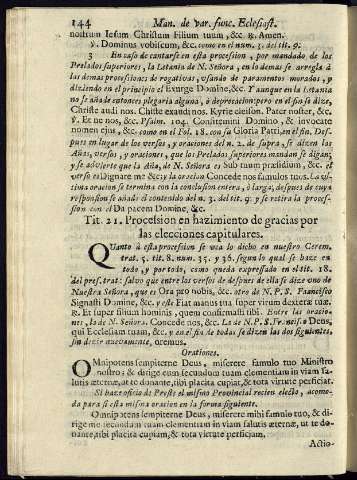 144 Man. de var. func. Eclesiast.
nostrum Iesum Christum Filium tuum, &c. ℟. Amen.
℣. Dominus vobiscum, &c. como en el num. 5. del tit. 9.
3 En caso de cantarse en esta procesion, por mandado de los
Prelados superiores, la Letania de N. Señora, en lo demas se arregla à
las demas procesiones de rogativas, usando de paramentos morados, y
diziendo en el principio el Exurge Domine, &c. Y aunque en la Letania
no se añade entonces plegaria alguna, ò deprecacion; pero en el fin se dize,
Christe audi nos. Christe exaudi nos. Kyrie eleison. Pater noster, &c.
℣. Et ne nos, &c. Psalm. 104. Confitemini Domino, & invocate
nomen ejus, &c. como en el Fol. 18. con su Gloria Patri, en el fin. Des-
pues en lugar de los versos, y oraciones del n. 2. de supra, se dizen las
Añas, versos, y oraciones, que los Prelados superiores mandan se digan;
y se advierte que la Aña, de N. Señora es Sub tuum præsidium, &c. et
verso es Dignare me &c; y la oracion Concede nos famulos tuos. La ul-
tima oracion se termina con la conclusion entera, ò larga, despues de cuya
responsion se añade el contenido del n. 3. del tit. 9. y se retira la proces-
sion con el Da pacem Domine, &c.
Tit. 21. Procession en hazimiento de gracias por
las elecciones capitulares.
QUanto à esta procession se vea lo dicho en nuestro Cerem.
trat. 5. tit. 8. num. 35. y 36. segun lo qual se haze en
todo, y por todo, como queda expressado en el tit. 18.
del pres. trat: salvo que entre los versos de despues de ella se dize uno de
Nuestra Señora, que es Ora pro nobis, &c. otro de N. P. S. Francisco
Signasti Domine, &c. y este Fiat manus tua super virum dexteræ tuæ.
℟. Et super filium hominis, quem confirmasti tibi. Entre las oracio-
nes, la de N. Señora. Concede nos, &c. La de N. P. S. Francisco Deus,
qui Ecclesiam tuam, &c. y en el fin de todas se dizen las dos siguientes,
sin dezir nuevamente, oremus.
Orationes.
OMnipotens sempiterne Deus, miserere famulo tuo Ministro
nostro; & dirige eum secundum tuam clementiam in viam sa-
lutis æternæ, ut te donante, tibi placita cupiat, & tota virtute perficiat.
Si haze oficio de Preste el mismo Provincial recien electo, acomo-
da para si esta misma oracion en la forma siguiente.
Omnipotens sempiterne Deus, miserere mihi famulo tuo, & di-
rige me secundum tuam clementiam in viam salutis æternæ, ut te do-
nante, tibi placita cupiam, & tota virtute perficiam.
Actio-